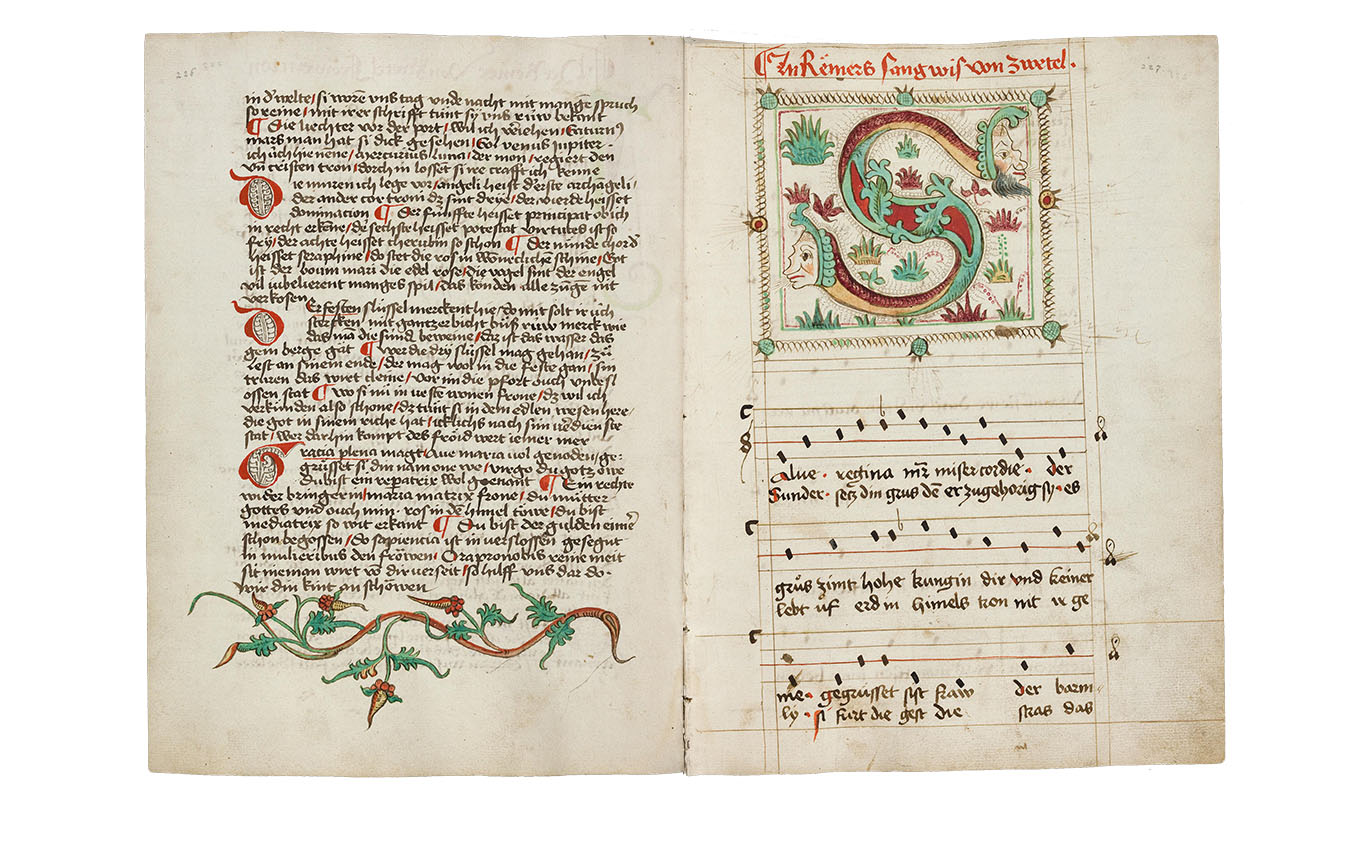 in d' welte / si worē vns tag vnde nacht mit mangē spruch
so reine / mit irer schrifft tunt sÿ vns rüw bekant
¶ Die liechter vor der port / wil ich veiehen / Saturn9
mars man hat si dick gesehen / Sol venus Jupiter
ich üch hie nene / Mercurius luna / der mon / regiert den
vil cristen tron / dorch in losset si ire crafft ich kenne
Die muren ich lege vor / angeli heist d'erste archāgeli /
der ander cor troni dz sint drÿe / der vierde heisset
dominacion ¶ Der fünffte heisset principat ob ich
in recht erkēne / der sechste heisset potestat virtutes ist so
frÿ / der achte heisset cherubin so schon ¶ Der nünde chord'
heisset seraphine / do stet die ros in wunēcliche schine / Got
ist der boum mari die edel rose / die vogel sint der engel
vil iubelierent manges spil / das kōnden alle zunge nit
verkosen
Der festen slüssel merckent hie / do mit solt ir üch
stercken / mit gantzer bicht büß rüw merck wie
das mā die sünd beweine / daz ist das wasser das
gein berge gāt ¶ Wer die drÿ slüssel mag gehan / zü
lest an sinem ende / der mag wol in die feste gan / sin
truren das wirt cleine / vor im die pfort ouch vnbesl
ossen stat ¶ Wo si nü in veste wonen frone / dz wil ich
verkünden also schone / dz tünt si in dem edlen wesen here /
die got in sinem riche hat / icklichs nach sim v'diēn ste
stat / wer darhin kompt des froid wert iemer mer
Gracia plena magt / Aue maria vol genoden / ge-
grüsset si din nam one we / virgo du gotz öwe
du bist ein reparatrix wol genant ¶ Ein rechte
wider bringerin / maria matrix frone / du mütter
gottes vnd ouch min · ros in dē himel töwe / du bist
mediatrix so wit erkant ¶ Du bist der gulden eimē
schon begossen / do sapiencia ist in verslossen gesegnt
in mulieribus den fröwen / Ora pro nobis reine meit
sit nieman wirt vō dir verseit / so hilff vns dar do
wir din kint an schöwen
¶ In Rēmers sang wis von zwetel .
S
Alue · regina mr̄ misericordie · der
Sunder · setz din grus dē er zugehorig sÿ · es
b
grüs zimt hohe kungin dir vnd keiner
lebt uf erd in himels tron nit ir ge
b
me · gegrüsset sist fraw der barm
ly · si furt die gest die stras das